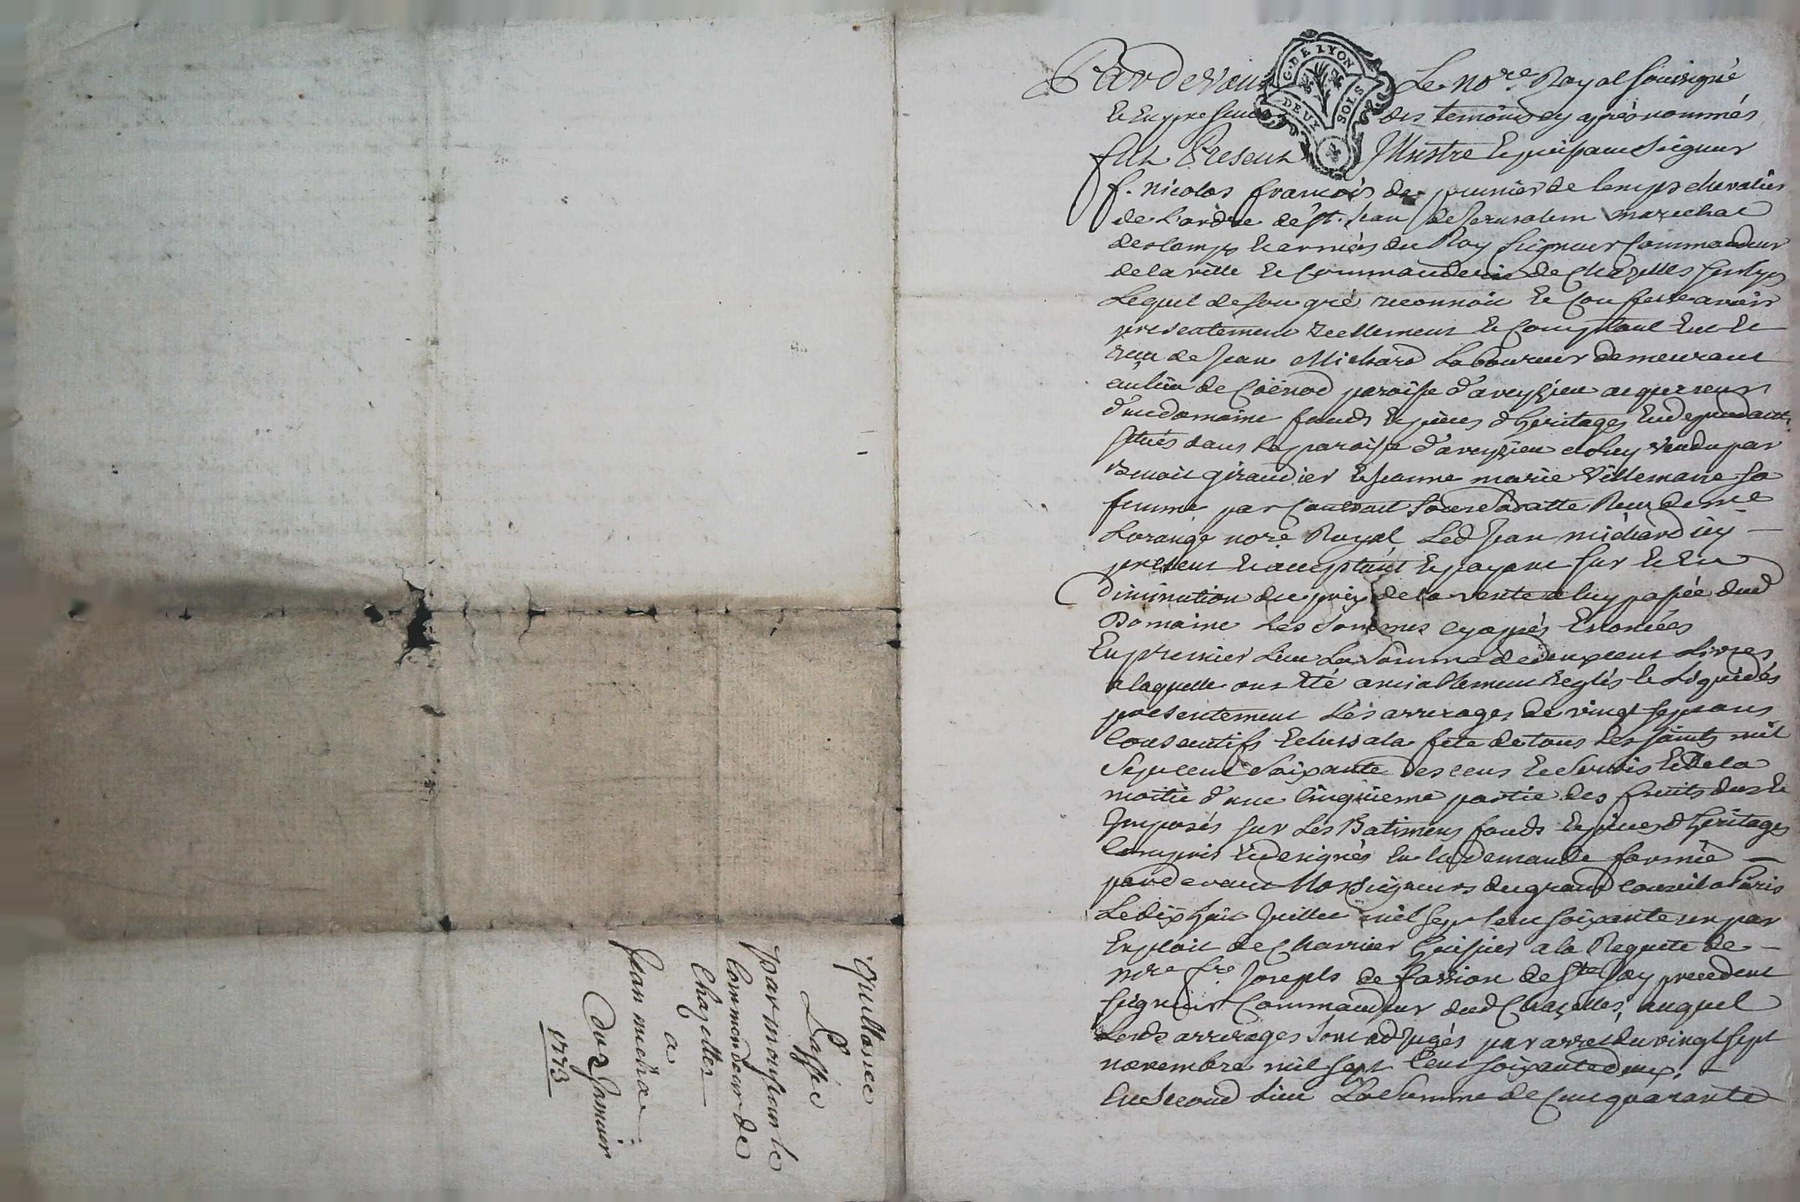 quittance
passée
par monsieur le
commandeur de
Chazelles
a
Jean michard
du 2 Janvier
1773
G. DE LYON
DEUX SOLS
Pardevant Le no.re Royal soussigné
Et En presence des temoins cy aprés nommés
fut Present Illustre Et puissant Seigneur
f. nicolas françois de Lemps chevalier
de L'ordre de st. Jean de Jerusalem marechal
des Camps Et armées du Roy Seigneur Commandeur
de la ville Et Commanderie de Chazelles
Lequel de son gré reconnoit Et Confesse avoir
presentement reellement Et Comptant Eut Et
reçu de Jean Michard Laboureur demeurant
au lieu de Coënod paroisse d'aveyzieu acquereur
d'un domaine fonds Et pieces d'heritages En dependants
situés dans la paroisse d'aveyzieu a luy vendu par
Benoit giraudier Et Jeanne marie Villemagne sa
femme par Contrat Reçu de me
Lorange no.re Royal Led Jean michard icy
present Et acceptant Et payant sur Et En
Diminution du prix de la vente a luy passée dud
Domaine Les sommes cy aprés Enoncées
En premier Lieu La Somme de deux cent Livres
a laquelle ont Eté amiablement Reglés Et Liquidés
presentement Les arrerages de vingt sept ans
Consecutifs Echus a la fete de tous Les saints mil
Sept cent Soixante des cens Et Servis Et de la
moitié d'une Cinquieme partie des fruits dus Et
Imposés sur Les Batimens fonds Et pieces d'heritages
Compris Et designés En la demande formée
pardevant Nosseigneurs du grand Conseil a Paris
Le dix huit Juillet mil sept Cent soixante un par
Exploit de Charrier huissier a la Requete de
Mre fre. Joseph de de Ste Jay precedent
Seigneur Commandeur dud Chazelles, auquel
Lesds arrerages sont adjugés par arret du vingt sept
novembre mil sept Cent soixante deux.
En Second Lieu La Somme de Cent quarante